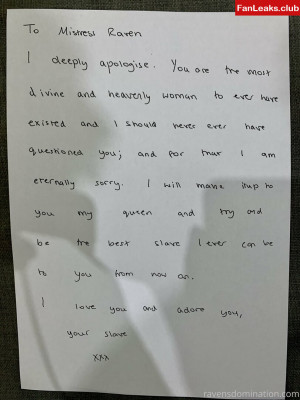 FanLeaks.club
To Mistress Raven
I deeply apologise. You are the most
divine and heavenly woman to ever have
existed and I should never ever have
questioned you; and for that I am
eternally sorry. I will make itup to
you my queen and try and
be the best slave I ever can be
to you from now on.
I love you and adore you,
your slave
xxx
ravensdomination.com